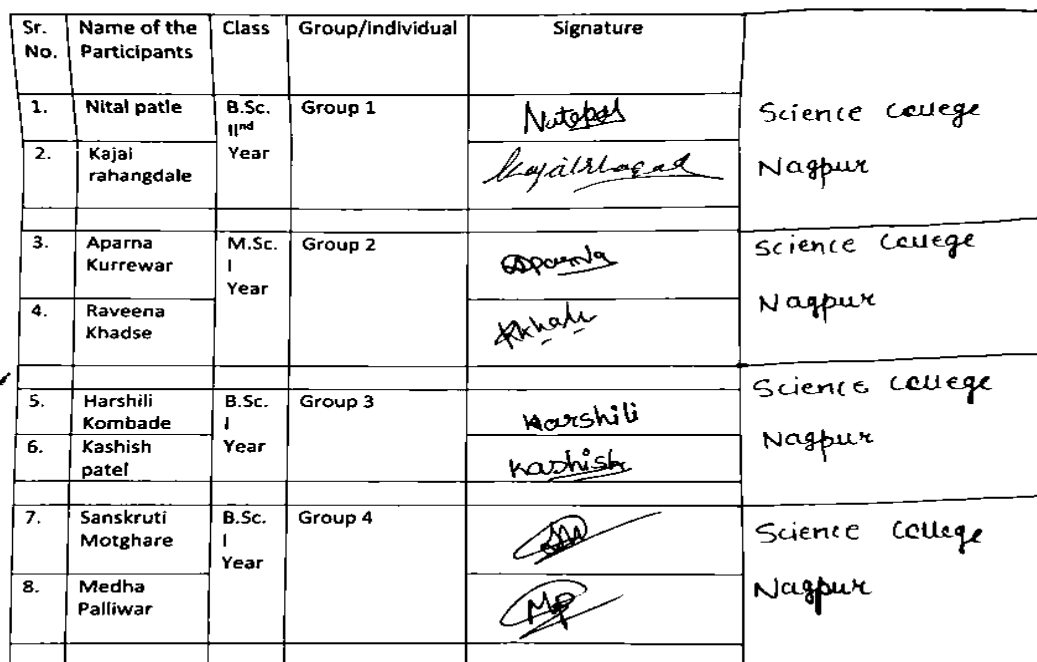 Sr. No. Name of the Participants Class Group/Individual Signature
1. Nital patle B.Sc. IInd Year Group 1 Science College
2. Kajal rahangdale Nagpur
3. Aparna Kurrewar M.Sc. I Year Group 2 Aparna Science College
4. Raveena Khadse Nagpur
5. Harshili Kombade B.Sc. I Year Group 3 Harshili Science College
6. Kashish patel Kashish Nagpur
7. Sanskruti Motghare B.Sc. I Year Group 4 Science College
8. Medha Palliwar MP Nagpur